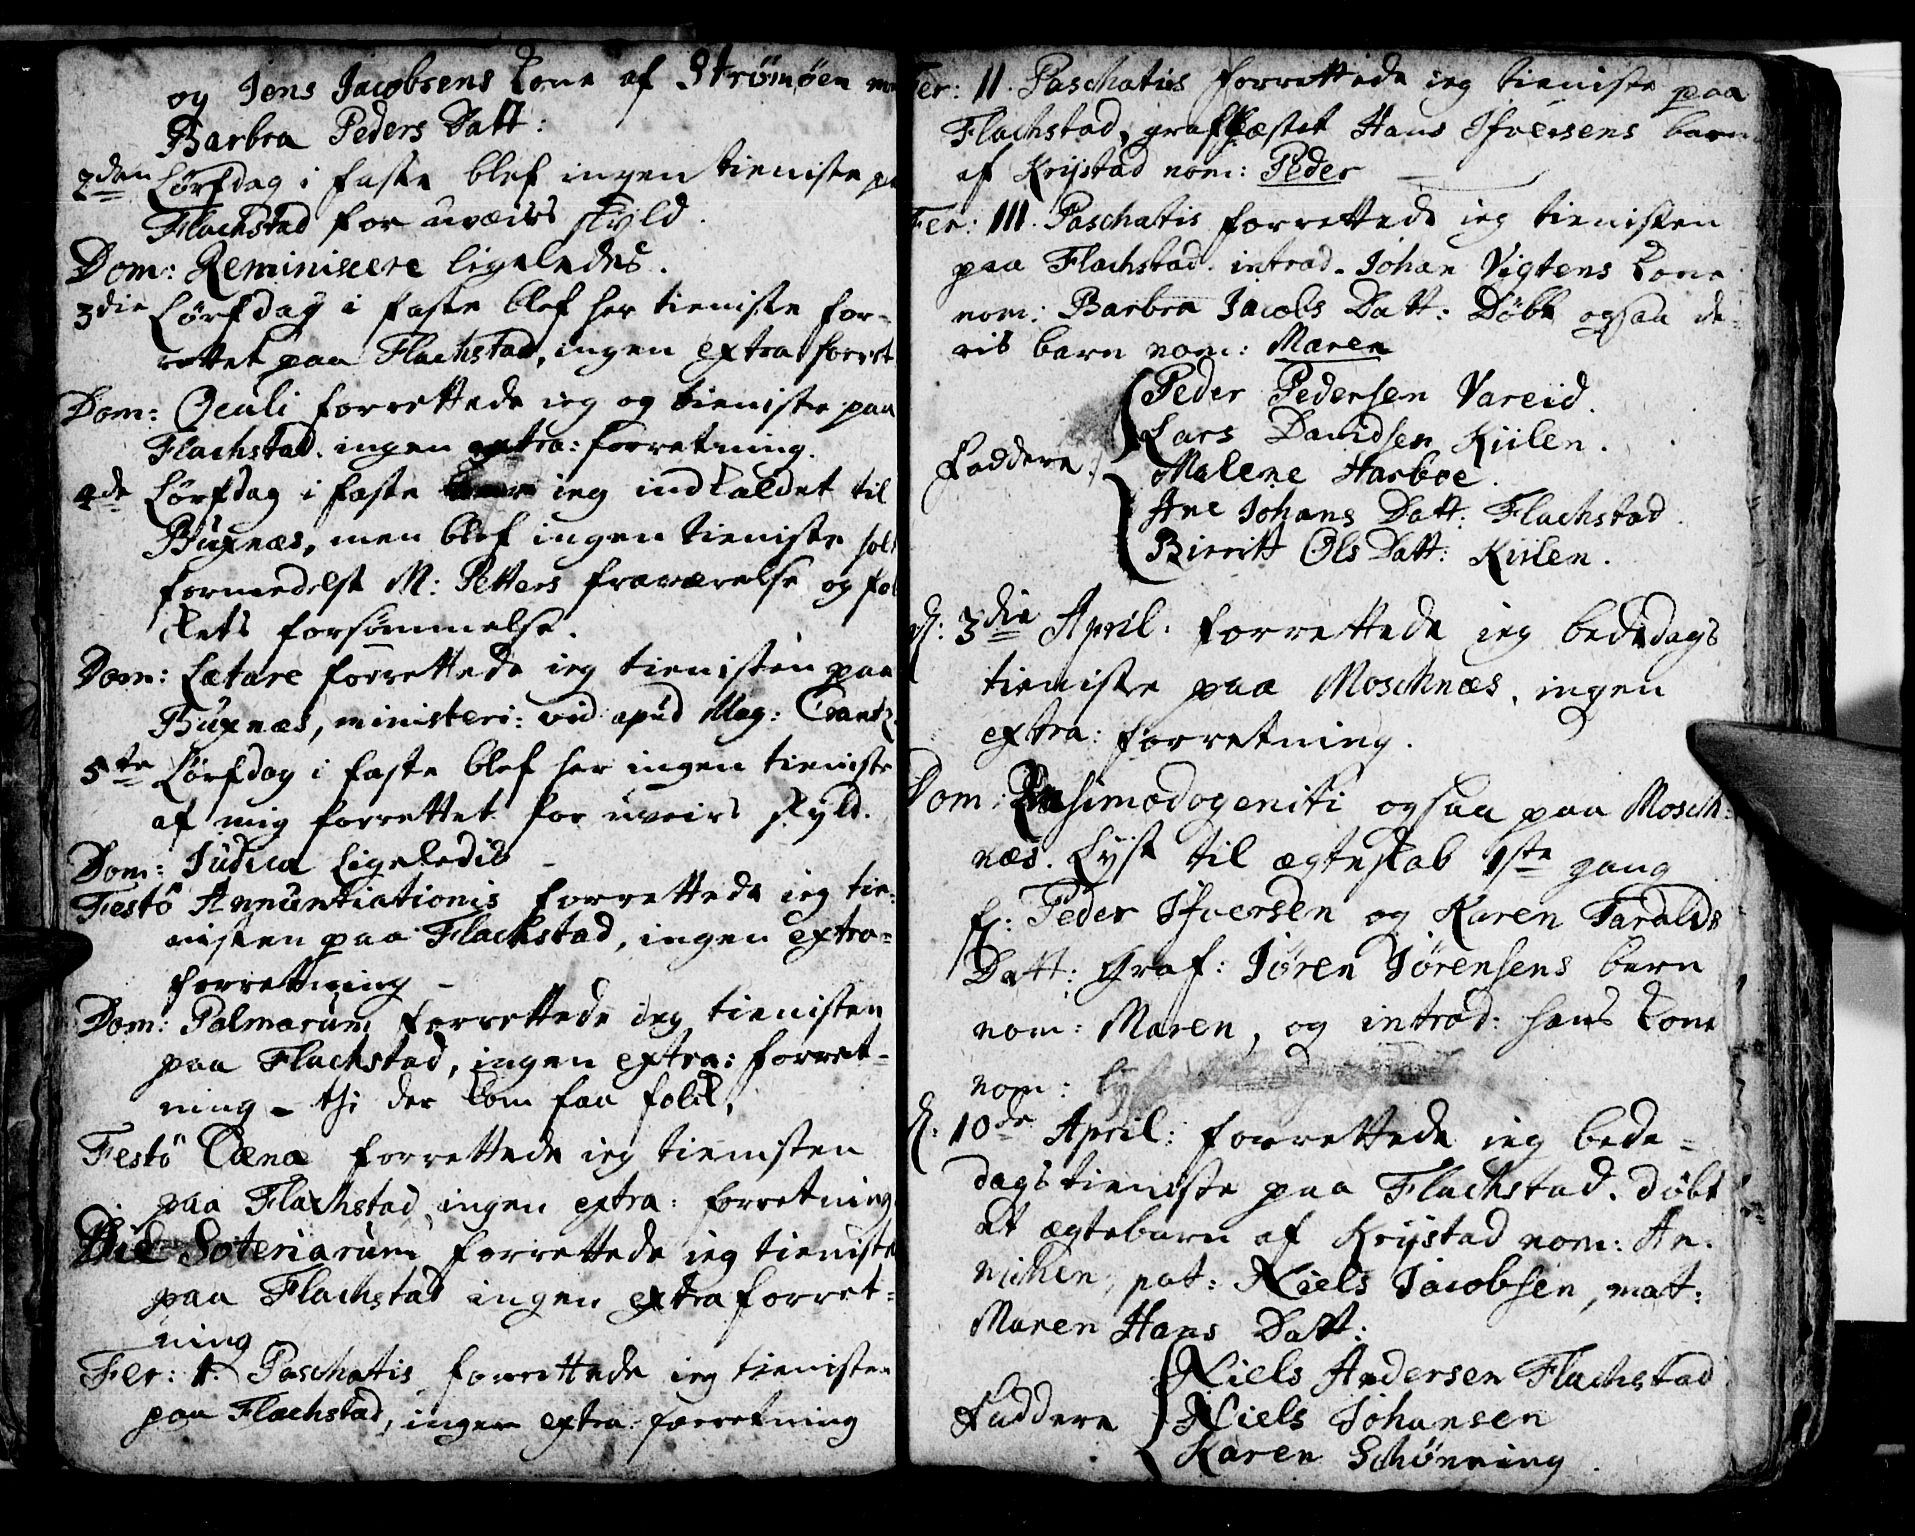 og Jens Jacobsens Kone af Strømøen
Barbra Peders Datt:
2den Lørsdag i faste blef ingen tieniste
Flachstad for uveirs skyld.
Dom: Reminiscere ligeledes.
3die Lørsdag i faste blef her tieniste for-
rettet paa Flachstad, ingen extra forret
Dom: Oculi forrettede ieg og tieniste paa
Flachstad. ingen extra: forretning.
4de Lørsdag i faste ieg indkaldet til
Buxnæs, men blef ingen tieniste hol
formedelst M: Petters fraværelse og fol
kets forsømmelse.
Dom: Lætare forrettede ieg tienisten paa
Buxnæs, ministeri: vid apud Mag: Crantz
5te Lørsdag i faste blef her ingen tieniste
af mig forrettet for uveirs skyld.
Dom: Judica ligeledis
Festô Annuntiationis forrettede ieg tie-
nisten paa Flachstad, ingen extra-
forretning -
Dom: Palmarum forrettede ieg tienisten
paa Flachstad, ingen extra: forret-
ning - thi der kom faa folck,
Festô Cænæ forrettede ieg tienisten
paa Flachstad ingen extra: forretning
Die Soteriarum forrettede ieg tieniste
paa Flachstad ingen extra forret-
ning
Fer: 1. Paschatis forrettede ieg tienisten
paa Flachstad, ingen extra forretning
Fer: II. Paschatis forrettede ieg tieniste paa
Flachstad, graffæstet Hans Ifversens barn
af Krystad nom: Peder
Fer: III. Paschatis forrettede ieg tienisten
paa Flachstad. introd. Johan Vigtens Kone
nom: Barbra Jacobs Datt: Døbt ogsaa de-
ris barn nom: Maren
Faddere:
Peder Pedersen Vareid.
Lars Davidsen Kiilen.
Malene Harboe.
Ane Johans Datt: Flachstad.
Birritt Ols Datt: Kiilen.
d. 3die April. forrettede ieg bededags
tieniste paa Moschnæs. ingen
extra: forretning.
Dom: Quasimodogeniti ogsaa paa Mosch-
næs. Lyst til ægteskab 1ste gang
f: Peder Ifversen og Karen Taralds
Datt: Graf: Jøren Jørensens bern
nom: Maren, og introd: hans Kone
nom:
d. 10de April: forrettede ieg bede-
dags tieniste paa Flachstad. døbt
et ægtebarn af Krystad nom: An-
nichen, pat: Niels Jacobsen, mat:
Maren Hans Datt:
Faddere
Niels Andersen Flachstad
Niels Johansen
Karen Schønning.